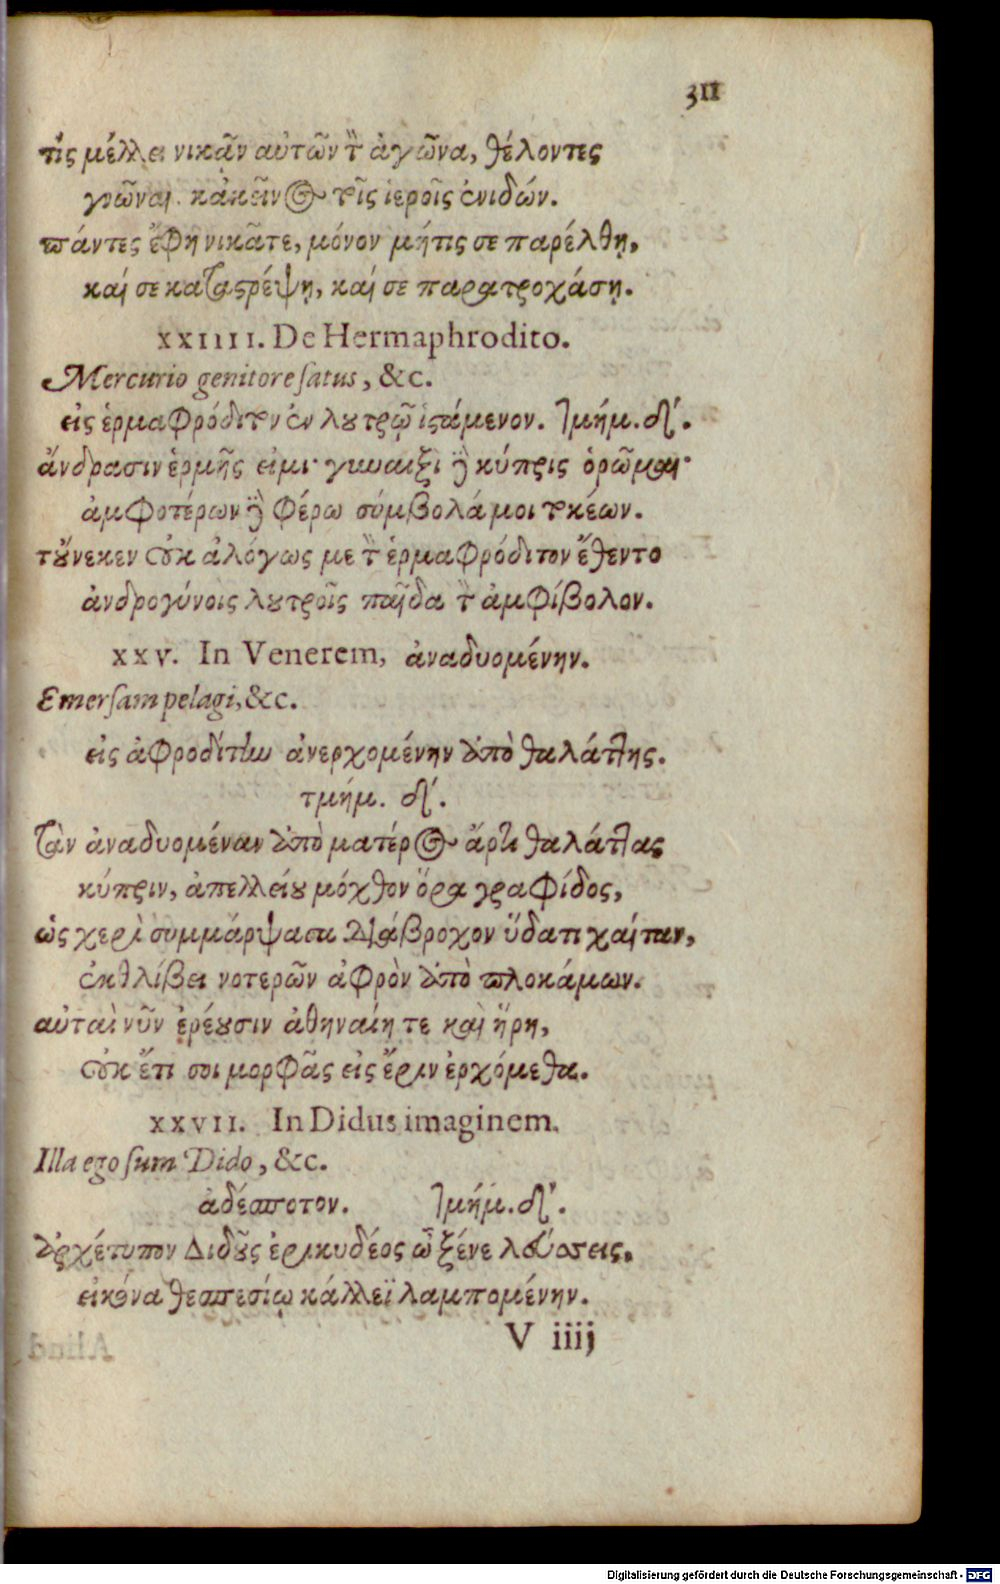 311
τίς μέλλει νικᾶν αὐτῶν τὸν ἀγῶνα, θέλοντες
γνῶναι. κἀκεῖνος τοῖς ἱεροῖς ἐνιδών.
πάντες ἔφη νικᾶτε, μόνον μήτις σε παρέλθῃ,
καί σε καταστρέψῃ, καί σε παρατροχάσῃ.
XXIIII. De Hermaphrodito.
Mercurio genitore satus, &c.
εἰς ἑρμαφρόδιτον ἐν λουτρῷ ἱστάμενον. τμήμ. δ´.
ἄνδρασιν ἑρμῆς εἰμι· γυναιξὶ δὲ κύπρις ὁρῶμαι·
ἀμφοτέρων δὲ φέρω σύμβολά μοι τοκέων.
τοὔνεκεν οὐκ ἀλόγως με τὸν ἑρμαφρόδιτον ἔθεντο
ἀνδρογύνοις λουτροῖς παῖδα τὸν ἀμφίβολον.
XXV. In Venerem, ἀναδυομένην.
Emersam pelagi, &c.
εἰς ἀφροδίτην ἀνερχομένην ἀπὸ θαλάττης.
τμήμ. δ´.
Τὰν ἀναδυομέναν ἀπὸ ματέρος ἄρτι θαλάττας
κύπριν, ἀπελλείου μόχθον ὅρα γραφίδος,
ὡς χερὶ συμμάρψασα διάβροχον ὕδατι χαίταν,
ἐκθλίβει νοτερῶν ἀφρὸν ἀπὸ πλοκάμων.
αὐταὶ νῦν ἐρέουσιν ἀθηναίη τε καὶ ἥρη,
οὐκ ἔτι σοι μορφᾶς εἰς ἔριν ἐρχόμεθα.
XXVII. In Didus imaginem.
Illa ego sum Dido, &c.
ἀδέσποτον. τμήμ. δ´.
Ἀρχέτυπον Διδοῦς ἐρικυδέος ὦ ξένε λεύσσεις,
εἰκόνα θεσπεσίῳ κάλλεϊ λαμπομένην.
V iiij
Digitalisierung gefördert durch die Deutsche Forschungsgemeinschaft - DFG